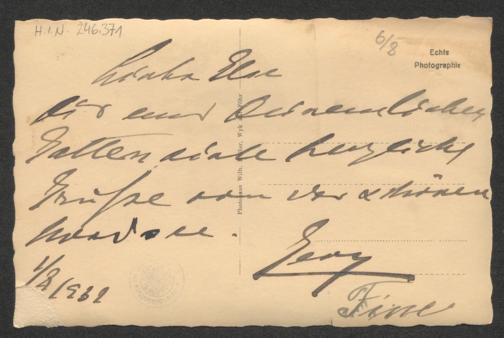 H.I.N. 246.371
6/8
Echte
Photographie
Liebe Else
Dir und Deinem lieben
Gatten viele herzliche
Grüße von der schönen
Nordsee.
1/8 1932
Photohaus Wilh. Wyk